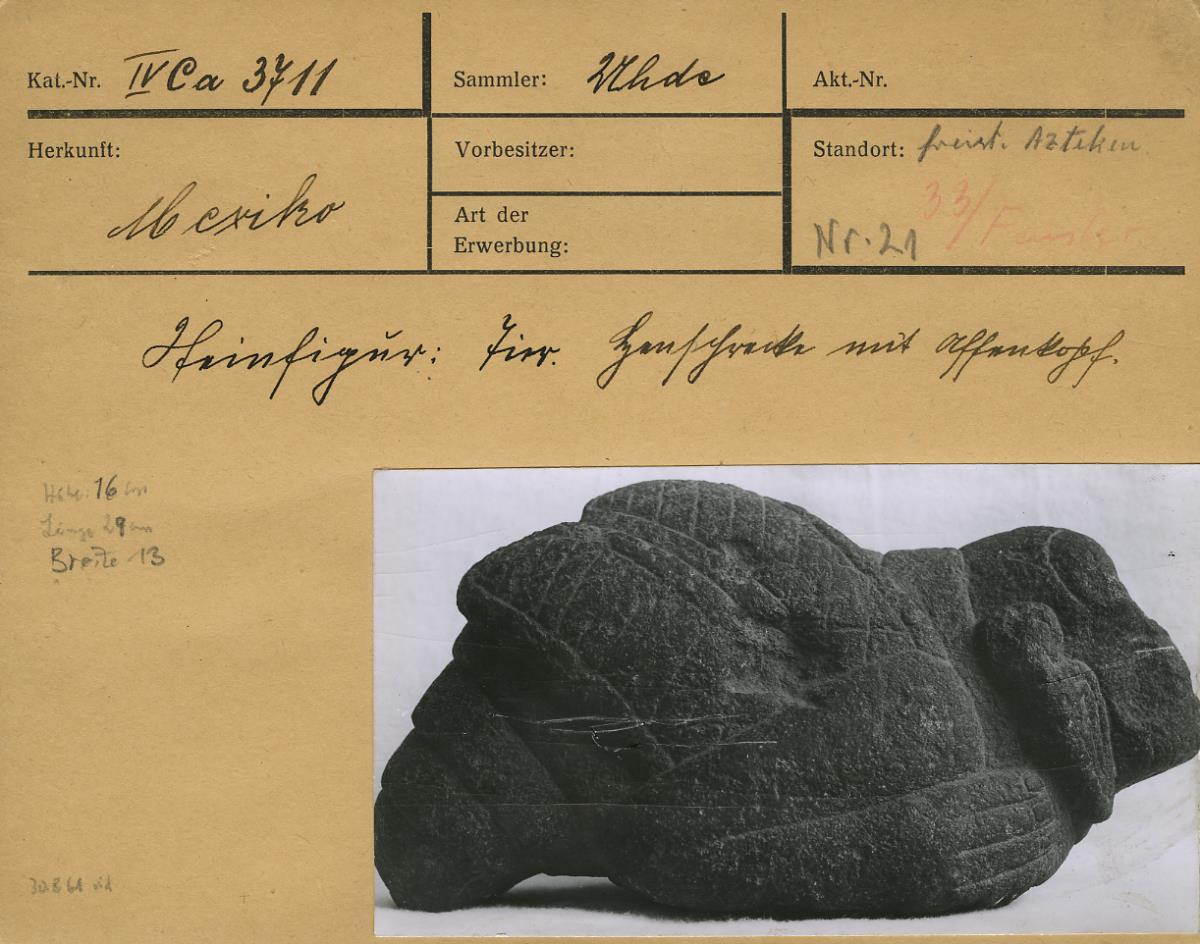 Kat.-Nr. IV Ca 3711
Sammler: Uhde
Akt.-Nr.
Herkunft:
Mexiko
Vorbesitzer:
Art der
Erwerbung:
Standort: freist. Azteken
33/
Nr. 21
Steinfigur: Tier. Heuschrecke mit Affenkopf.
Höhe: 16 cm
Länge 29 cm
Breite 13